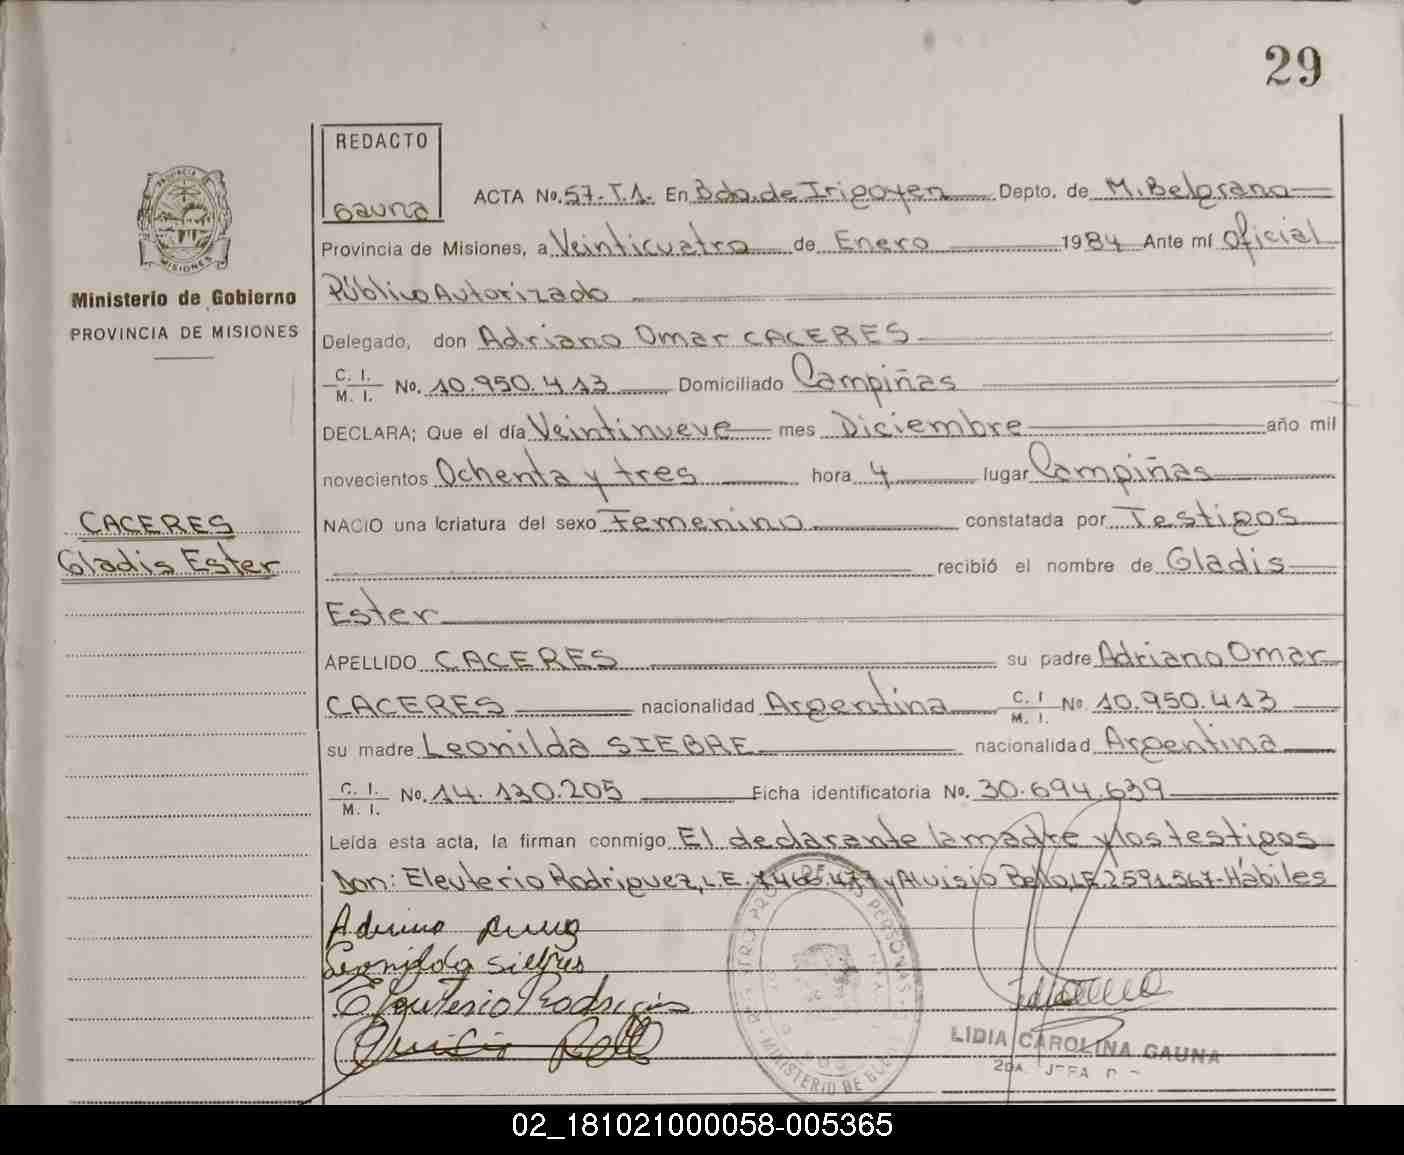 29
REDACTO
Gauna
PROVINCIA DE
MISIONES
Ministerio de Gobierno
PROVINCIA DE MISIONES
CACERES
Gladis Ester
ACTA No. 57. T.1. En Bdo. de Irigoyen Depto. de M. Belgrano
Provincia de Misiones, a Veinticuatro de Enero 1984 Ante mí Oficial
Público Autorizado
Delegado, don Adriano Omar CACERES
C. I. M. I. No. 10.950.413 Domiciliado Campiñas
DECLARA; Que el día Veintinueve mes Diciembre año mil
novecientos Ochenta y tres hora 4 lugar Campiñas
NACIO una criatura del sexo Femenino constatada por Testigos
recibió el nombre de Gladis
Ester
APELLIDO CACERES su padre Adriano Omar
CACERES nacionalidad Argentina C. I M. I. No 10.950.413
su madre Leonilda SIEBRE nacionalidad Argentina
C. I. M. I. No. 14.130.205 Ficha identificatoria No. 30.694.639
Leída esta acta, la firman conmigo El declarante la madre y los testigos
Don: Eleuterio Rodriguez, L.E. y Aluisio Bello L.E. 2591.567. Hábiles
Leonilda
Eleuterio Rodrigues
PERSONAS
MINISTERIO DE
LIDIA CAROLINA GAUNA
2DA. JEFA
02_181021000058-005365